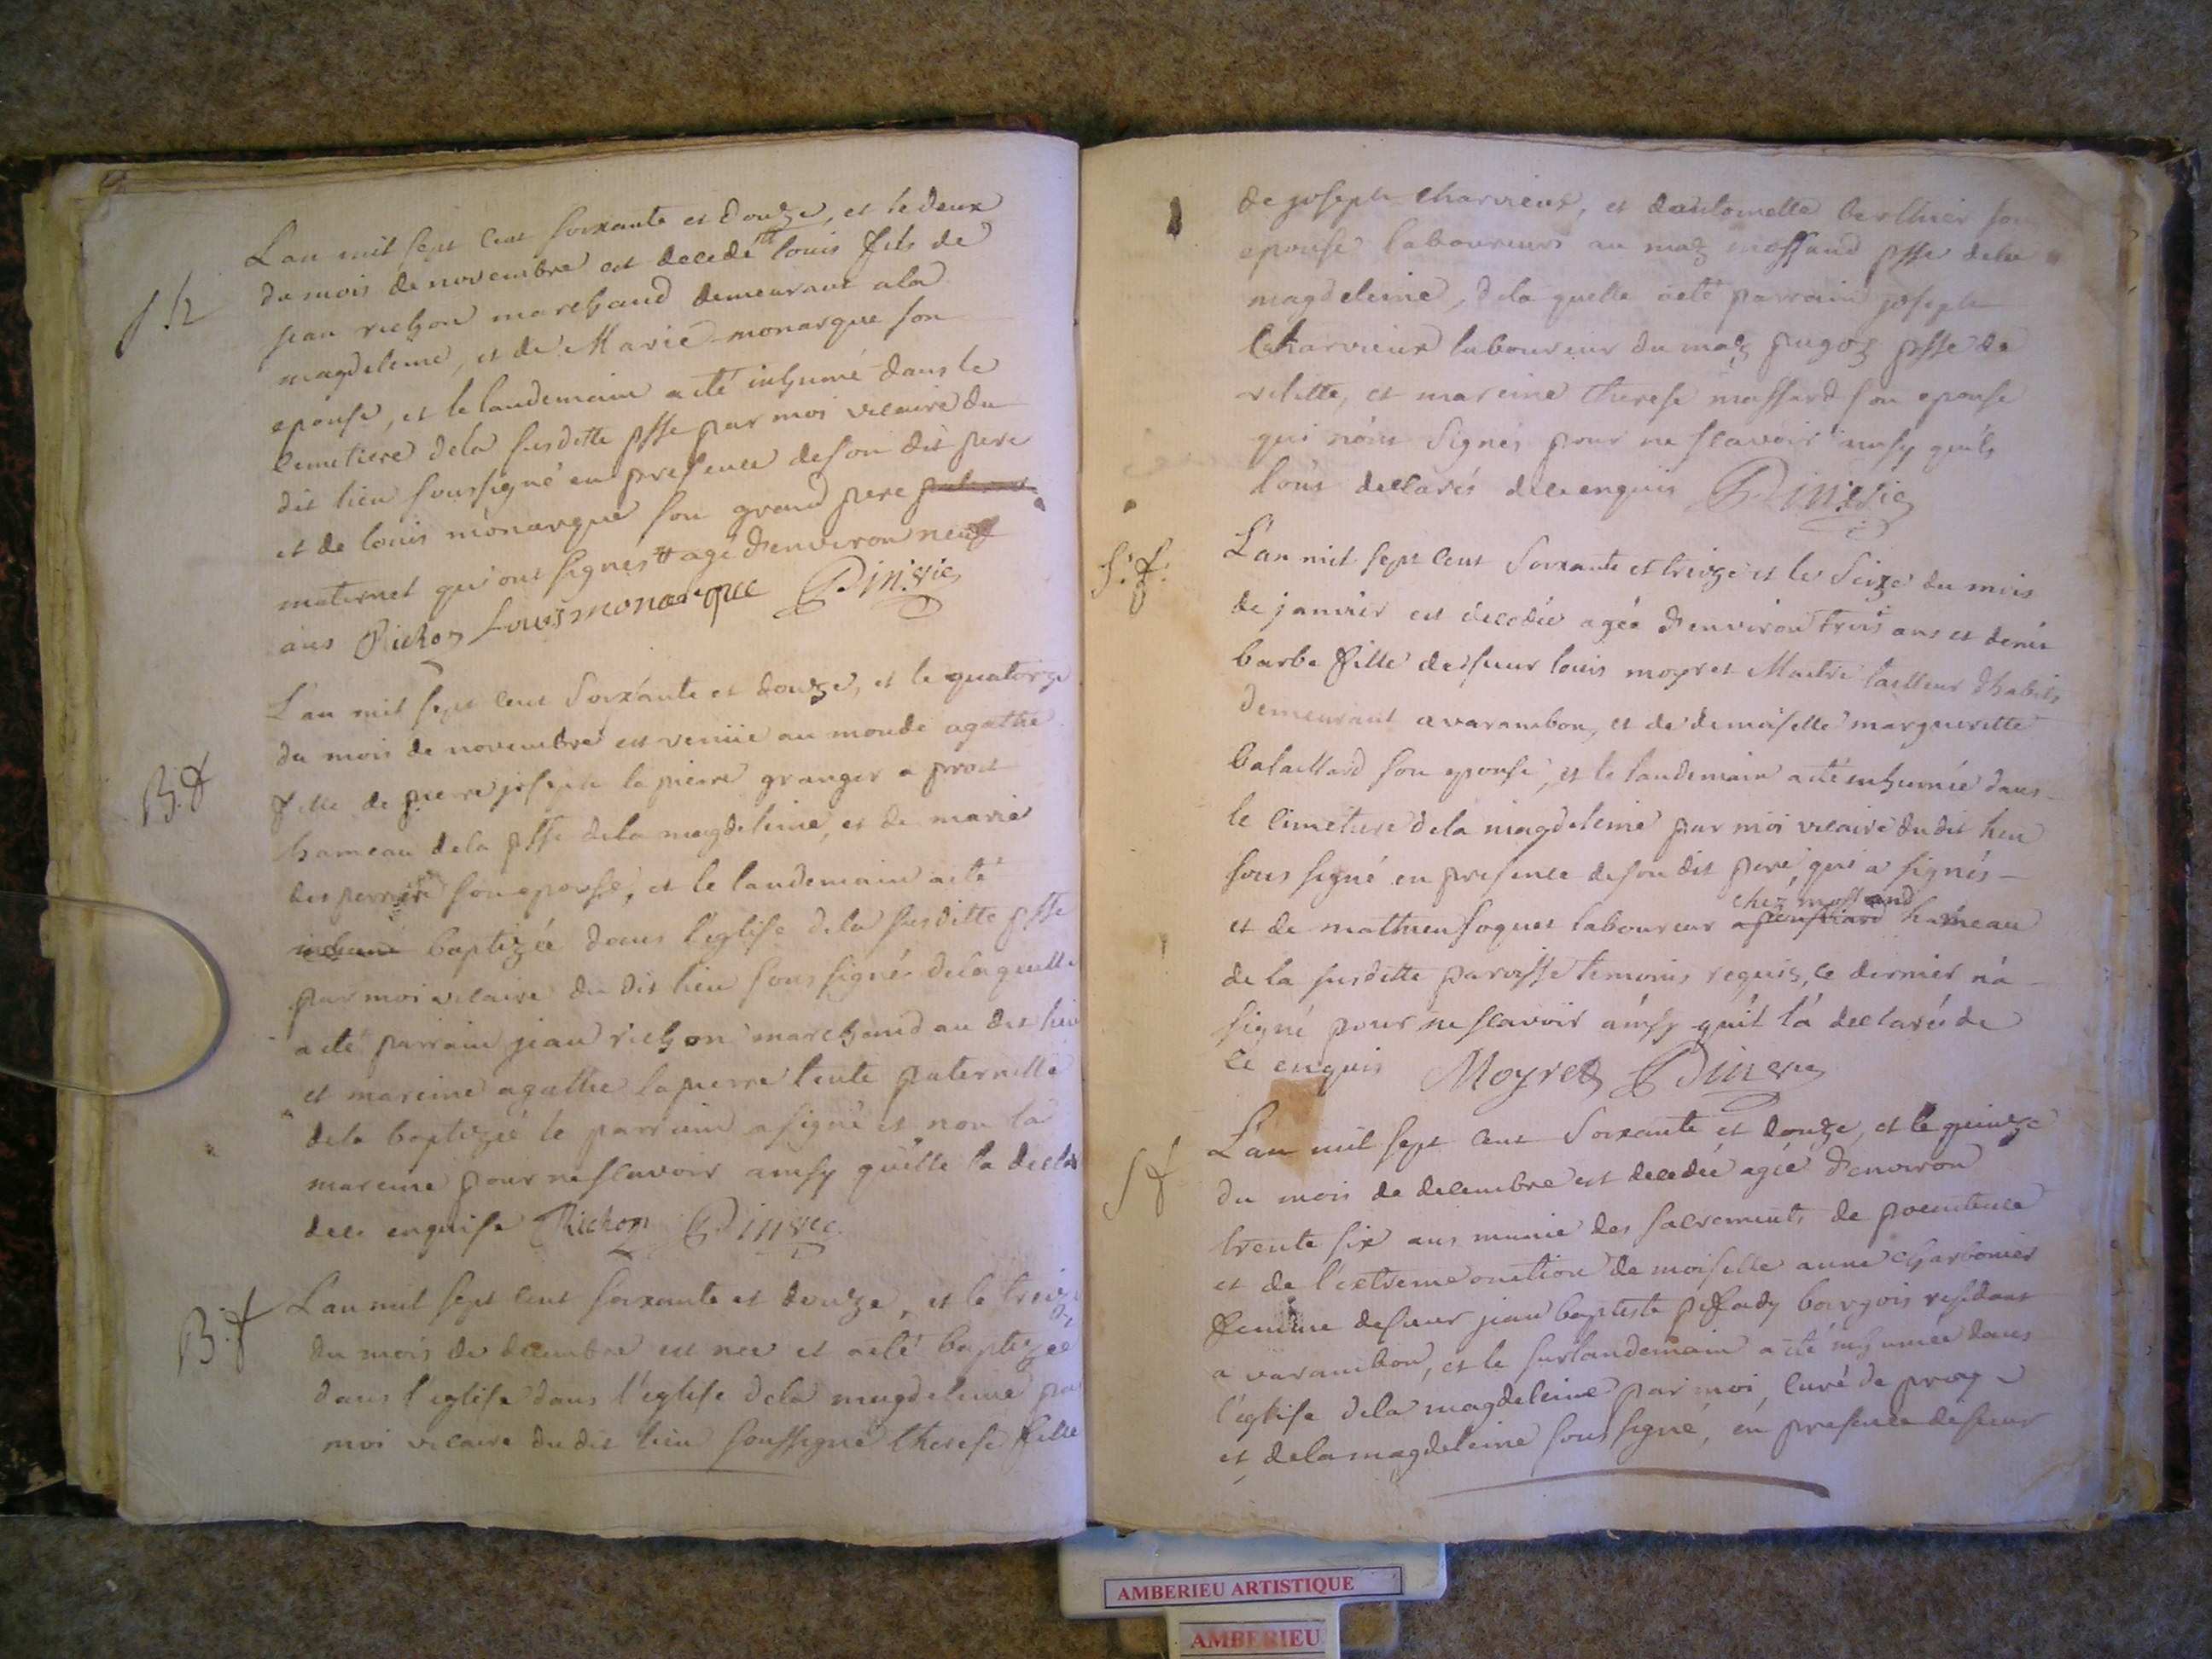 S.h
L'an mil sept cent soixante et douze, et le deux
du mois de novembre est decedé # louis fils de
jean richon marchand demeurant a la
magdeleine, et de Marie monarque son
epouse, et le landemain a été inhumé dans le
cimetiere de la susditte psse par moi vicaire du
dit lieu soussigné en presence de son dit pere
et de louis monarque son grand pere
maternel qui ont signés # agé d'environ neuf
ans Richon Louis monarque Pin vic
B.f
L'an mil sept cent soixante et douze, et le quatorze
du mois de novembre est venüe au monde agathe
fille de pierre joseph la pierre granger a prost
hameau de la psse de la magdeleine, et de marie
desperrier son epouse, et le landemain a été
inhumé baptizée dans l'eglise de la susditte psse
par moi vicaire du dit lieu sous signé de laquelle
a été parrain jean richon marchand au dit lieu
et mareine agathe lapierre tente paternelle
de la baptizée le parrain a signé et non la
mareine pour ne scavoir ainsy quelle la decla
de ce enquise Richon Pin vic
B.f
L'an mil sept cent soixante et douze, et le treize
du mois de decembre est nee et a été baptizée
dans l'eglise dans l'eglise de la magdeleine par
moi vicaire du dit lieu soussigné therese fille
de joseph charvieux, et dantoinette berthier son
epouse laboureurs au maz massard psse de la
magdeleine, de la quelle a été parrain joseph
Charvieux laboureur du maz pugoz psse de
vilette, et mareine therese massard son epouse
qui n'ont signés pour ne scavoir ainsy quils
l'ont declarés de ce enquis Pin vic
S.f.
L'an mil sept cent soixante et treize et le seize du mois
de janvier est decedée agée d'environ trois ans et demi
barbe fille de sieur louis moyret Maitre tailleur d'habits
demeurant a varambon, et de demoiselle margueritte
bataillard son epouse, et le landemain a été inhumée dans
le cimetiere de la magdeleine par moi vicaire du dit lieu
sous signé en presence de son dit pere, qui a signés
chez massard
et de mathieu foquet laboureur hameau
de la susditte paroisse temoins requis, ce dernier n'a
signé pour ne scavoir ainsy qu'il l'a declarés de
ce enquis Moyret Pin vic
S f
L'an mil sept cent soixante et douze, et le quinze
du mois de decembre est decedée agée d'environ
trente six ans munie des sacrements de poenitence
et de l'extreme onction demoiselle anne charbonier
femme de sieur jean baptiste pillady bourgois residant
a varambon, et le surlandemain a été inhumée dans
l'eglise de la magdeleine par moi, curé de priay
et de la magdeleine sous signé, en presence de sieur
AMBERIEU ARTISTIQUE
AMBERIEU